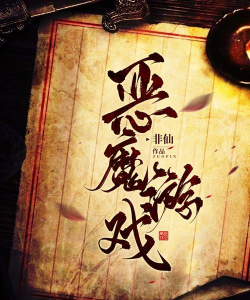 恶魔游戏
非仙
作品
ZUOPIN